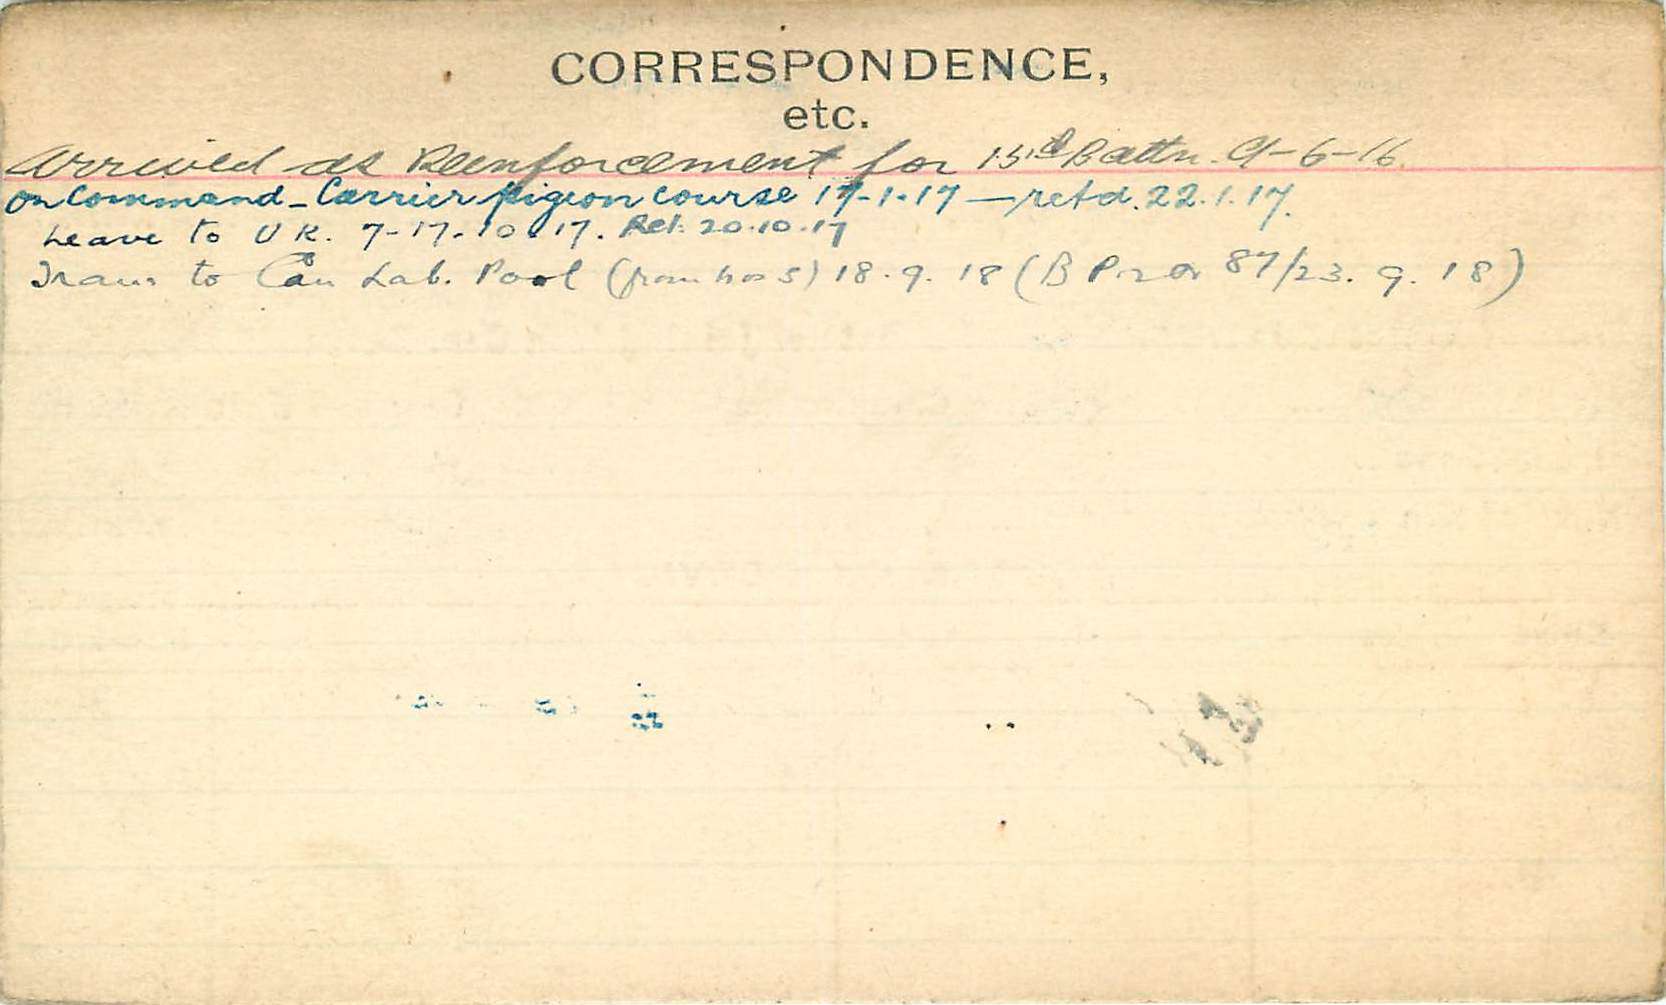 CORRESPONDENCE,
etc.
Arrived as Reinforcement for 15th Battn. 9-6-16.
on Command - Carrier pigeon course 17-1-17 - retd. 22.1.17.
Leave to U K. 7-17-10-17. Ret. 20.10.17
Trans to Can Lab. Pool (from hos) 18.9.18 ( 87/23.9.18)